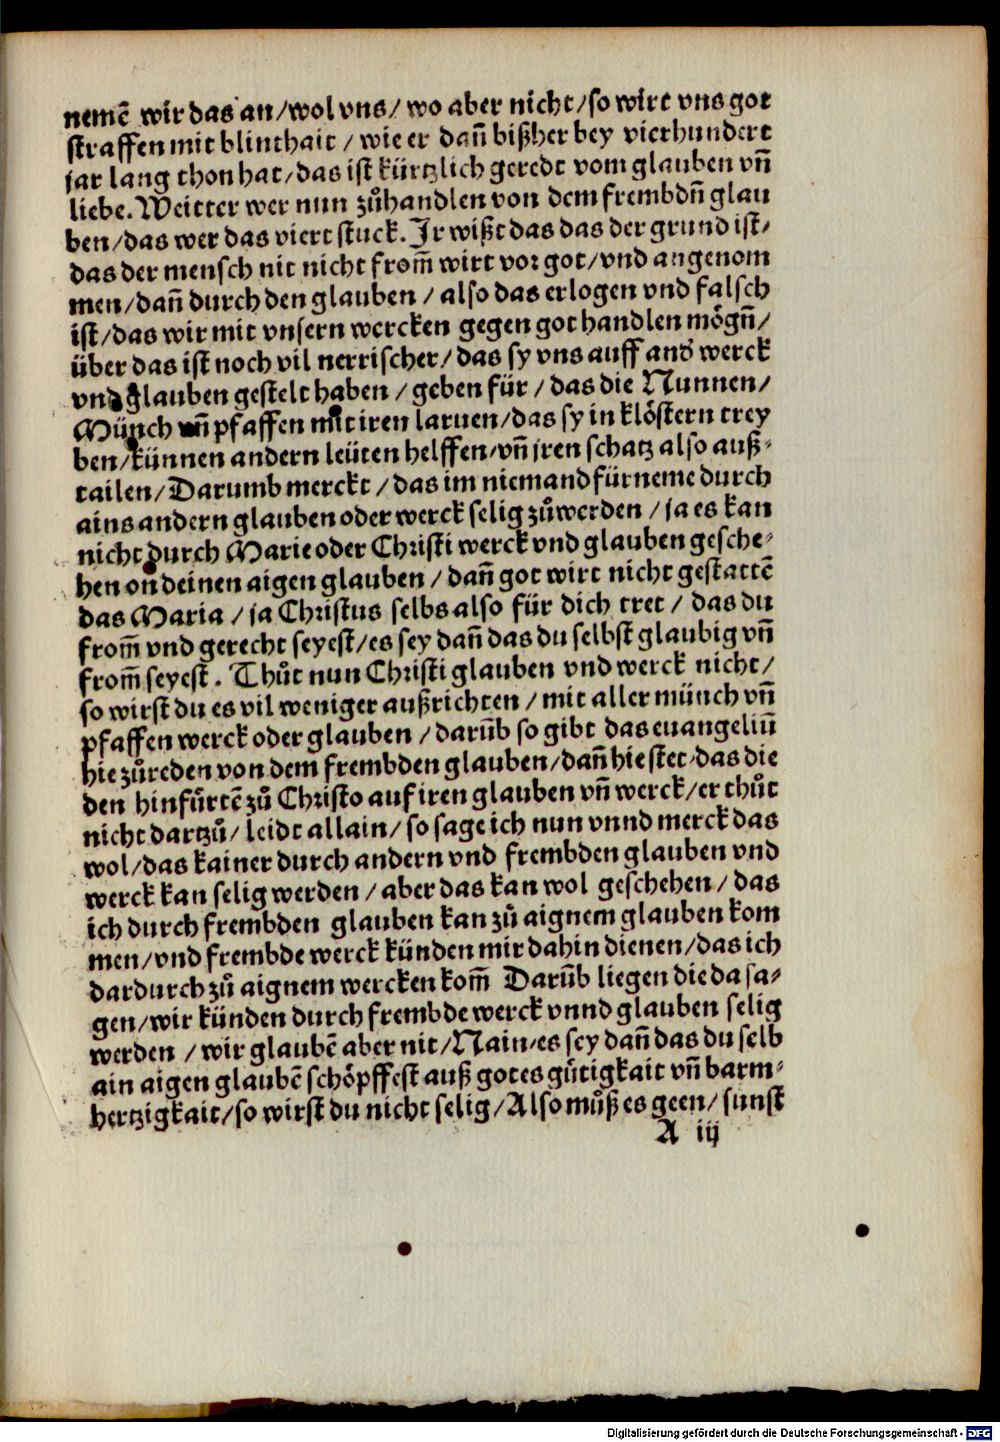 nemẽ wir das an/wol vns/ wo aber nicht/so wirt vns got
straffen mit blinthait / wie er dañ bißher bey vierhundert
jar lang thon hat/das ist kürtzlich geredt vom glauben vñ
liebe. Weitter wer nun zůhandlen von dem frembdñ glau
ben/das wer das viert stuck. Ir wißt das das der grund ist/
das der mensch nit nicht from̃ wirt vor got/vnd angenom
men/dañ durch den glauben / also das erlogen vnd falsch
ist/das wir mit vnsern wercken gegen got handlen mögñ/
über das ist noch vil nerrischer/das sy vns auff and̕ werck
vnd glauben gestelt haben / geben für / das die Nunnen/
Münch vñ pfaffen mit iren laruen/das sy in klöstern trey
ben/künnen andern leüten helffen/vñ jren schatz also auß-
tailen/Darumb merckt / das im niemand fürneme durch
ains andern glauben oder werck selig zůwerden / ja es kan
nicht durch Marie oder Christi werck vnd glauben gesche-
hen on deinen aigen glauben / dañ got wirt nicht gestattẽ
das Maria / ja Christus selbs also für dich tret / das du
from̃ vnd gerecht seyest/es sey dañ das du selbst glaubig vñ
from̃ seyest. Thůt nun Christi glauben vnd werck nicht/
so wirst du es vil weniger außrichten / mit aller münch vñ
pfaffen werck oder glauben / darũb so gibt das euangeliũ
hie zůreden von dem frembden glauben/dañ hie stet das die
den hinfůrtẽ zů Christo auf iren glauben vñ werck/er thůt
nicht dartzů/ leidt allain/ so sage ich nun vnnd merck das
wol/das kainer durch andern vnd frembden glauben vnd
werck kan selig werden / aber das kan wol geschehen / das
ich durch frembden glauben kan zů aignem glauben kom
men/vnd frembde werck künden mir dahin dienen/das ich
dardurch zů aignem wercken kom̃ Darũb liegen die da sa-
gen/wir künden durch frembde werck vnnd glauben selig
werden / wir glaubẽ aber nit/Nain/es sey dañ das du selb
ain aigen glaubẽ schöpffest auß gotes gůtigkait vñ barm-
hertzigkait/so wirst du nicht selig/Also můß es geen/ sunst
A iij
Digitalisierung gefördert durch die Deutsche Forschungsgemeinschaft - DFG